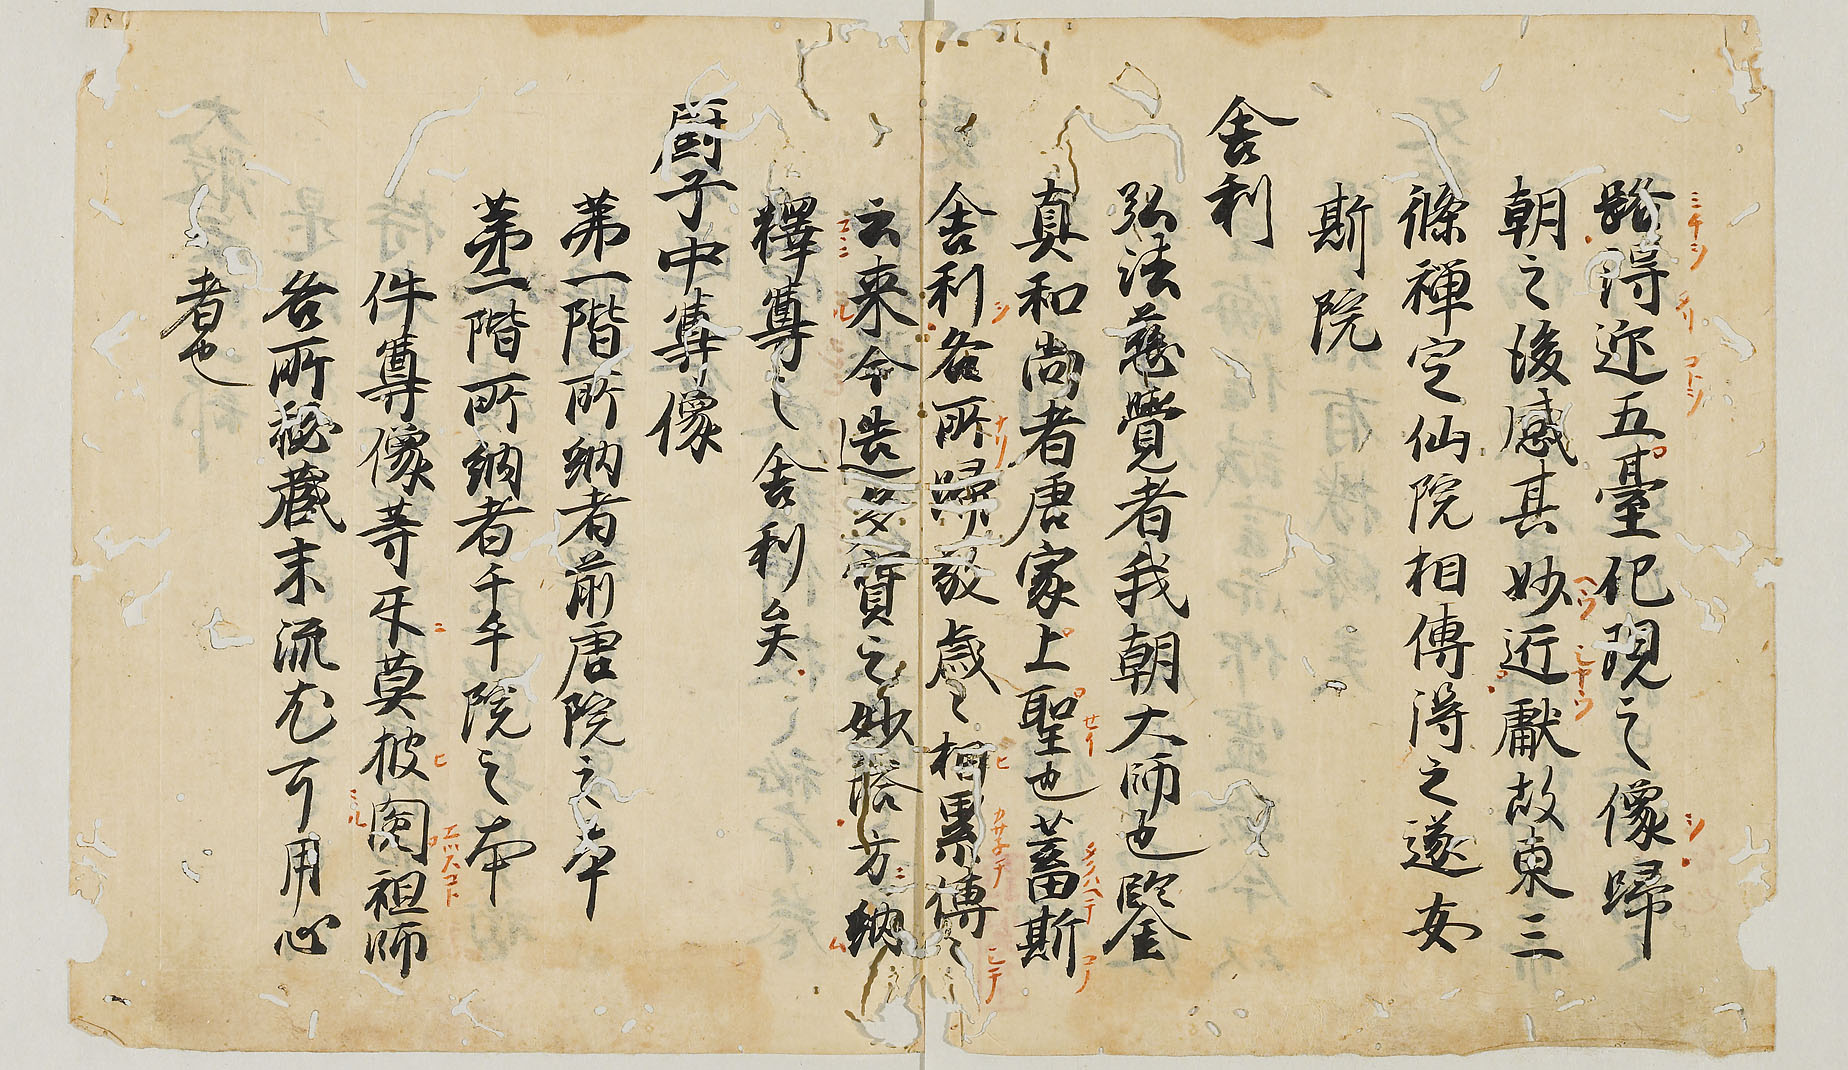 路得迎五臺化現之像歸
朝之後感其妙近獻故東三
條禅定仙院相傳得之遂安
斯院
舎利
弘法慈覺者我朝大師也鑒
真和尚者唐家上聖也蓄斯
舎利各所歸敬歳々相累傳々
云来今造多寳之妙塔方納
釋尊之舎利矣
厨子中尊像
苐一階所納者前唐院之本
苐二階所納者千手院之本
件尊像等牙莫披閲祖師
各所秘蔵末流尤可用心
者也